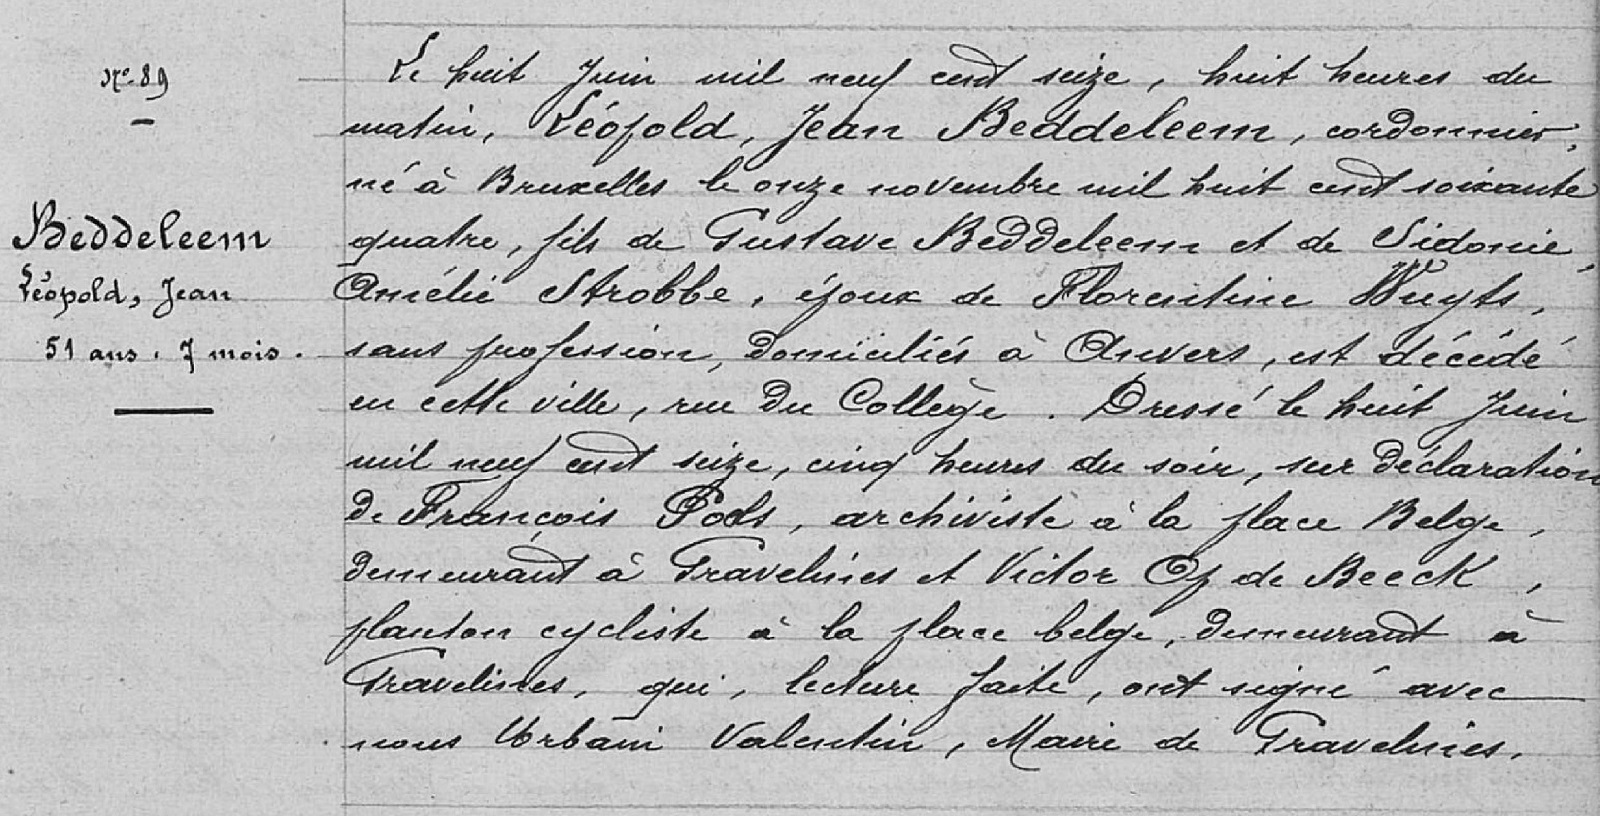 N° 89
Beddeleem
Léopold, Jean
51 ans. 7 mois.
Le huit Juin mil neuf cent seize, huit heures du
matin, Léopold, Jean Beddeleem, cordonnier,
né à Bruxelles le onze novembre mil huit cent soixante
quatre, fils de Gustave Beddeleem et de Sidonie,
Amélie Strobbe, époux de Florentine Wuyts,
sans profession, domiciliés à Anvers, est décédé
en cette ville, rue du Collège. Dressé le huit Juin
mil neuf cent seize, cinq heures du soir, sur déclaration
de François Pods, archiviste à la place Belge,
demeurant à Gravelines et Victor Op de Beeck,
planton cycliste à la place belge, demeurant à
Gravelines, qui, lecture faite, ont signé avec
nous Urbain Valentin, Maire de Gravelines.